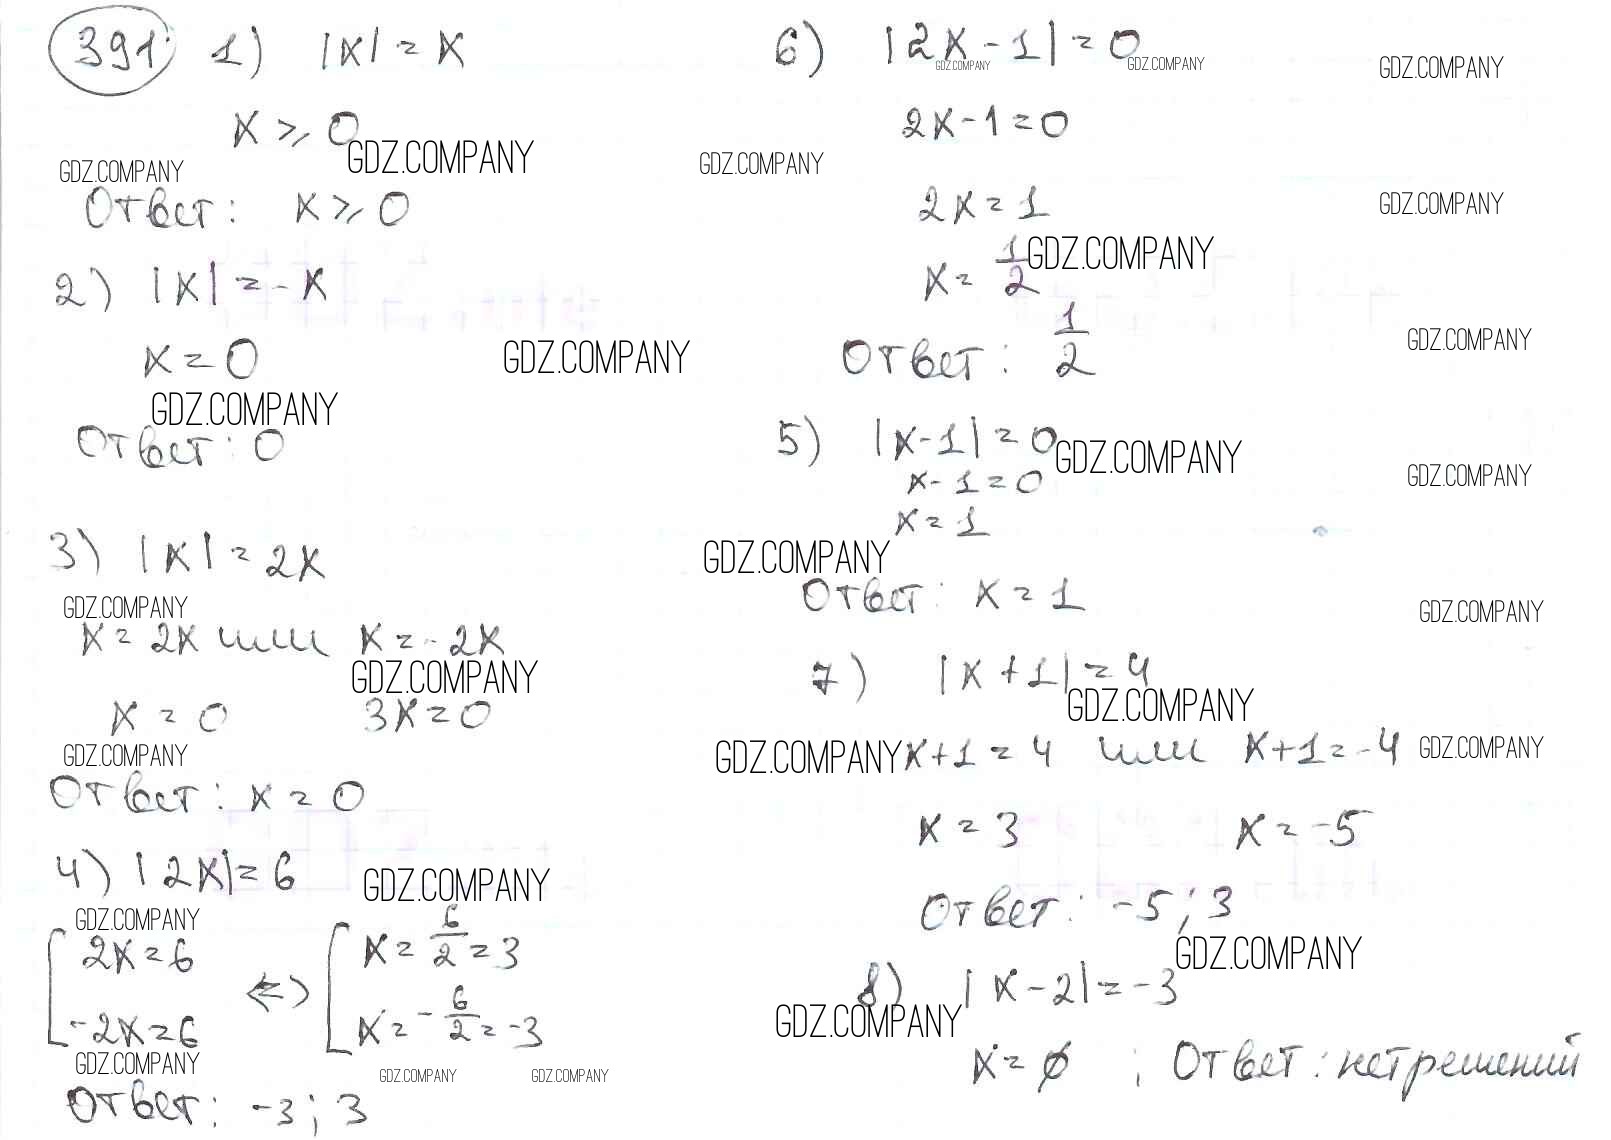 391. 1) |x| = x
x ⩾ 0
GDZ.COMPANY
GDZ.COMPANY
Ответ: x ⩾ 0
2) |x| = -x
x = 0
GDZ.COMPANY
GDZ.COMPANY
Ответ: 0
3) |x| = 2x
GDZ.COMPANY
x = 2x или x = -2x
GDZ.COMPANY
x = 0 3x = 0
GDZ.COMPANY
Ответ: x = 0
4) |2x| = 6
GDZ.COMPANY
GDZ.COMPANY
[ 2x = 6 <=> [ x = 6/2 = 3
-2x = 6 x = -6/2 = -3
GDZ.COMPANY
GDZ.COMPANY GDZ.COMPANY
Ответ: -3; 3
6) |2x - 1| = 0
GDZ.COMPANY GDZ.COMPANY GDZ.COMPANY
2x - 1 = 0
GDZ.COMPANY
2x = 1
GDZ.COMPANY
x = 1/2
GDZ.COMPANY
Ответ: 1/2
GDZ.COMPANY
5) |x - 1| = 0
GDZ.COMPANY
x - 1 = 0
GDZ.COMPANY
x = 1
GDZ.COMPANY
Ответ: x = 1
GDZ.COMPANY
7) |x + 1| = 4
GDZ.COMPANY
GDZ.COMPANY
x + 1 = 4 или x + 1 = -4
GDZ.COMPANY
x = 3 x = -5
Ответ: -5; 3
GDZ.COMPANY
8) |x - 2| = -3
GDZ.COMPANY
x = ∅ ; Ответ: нет решений